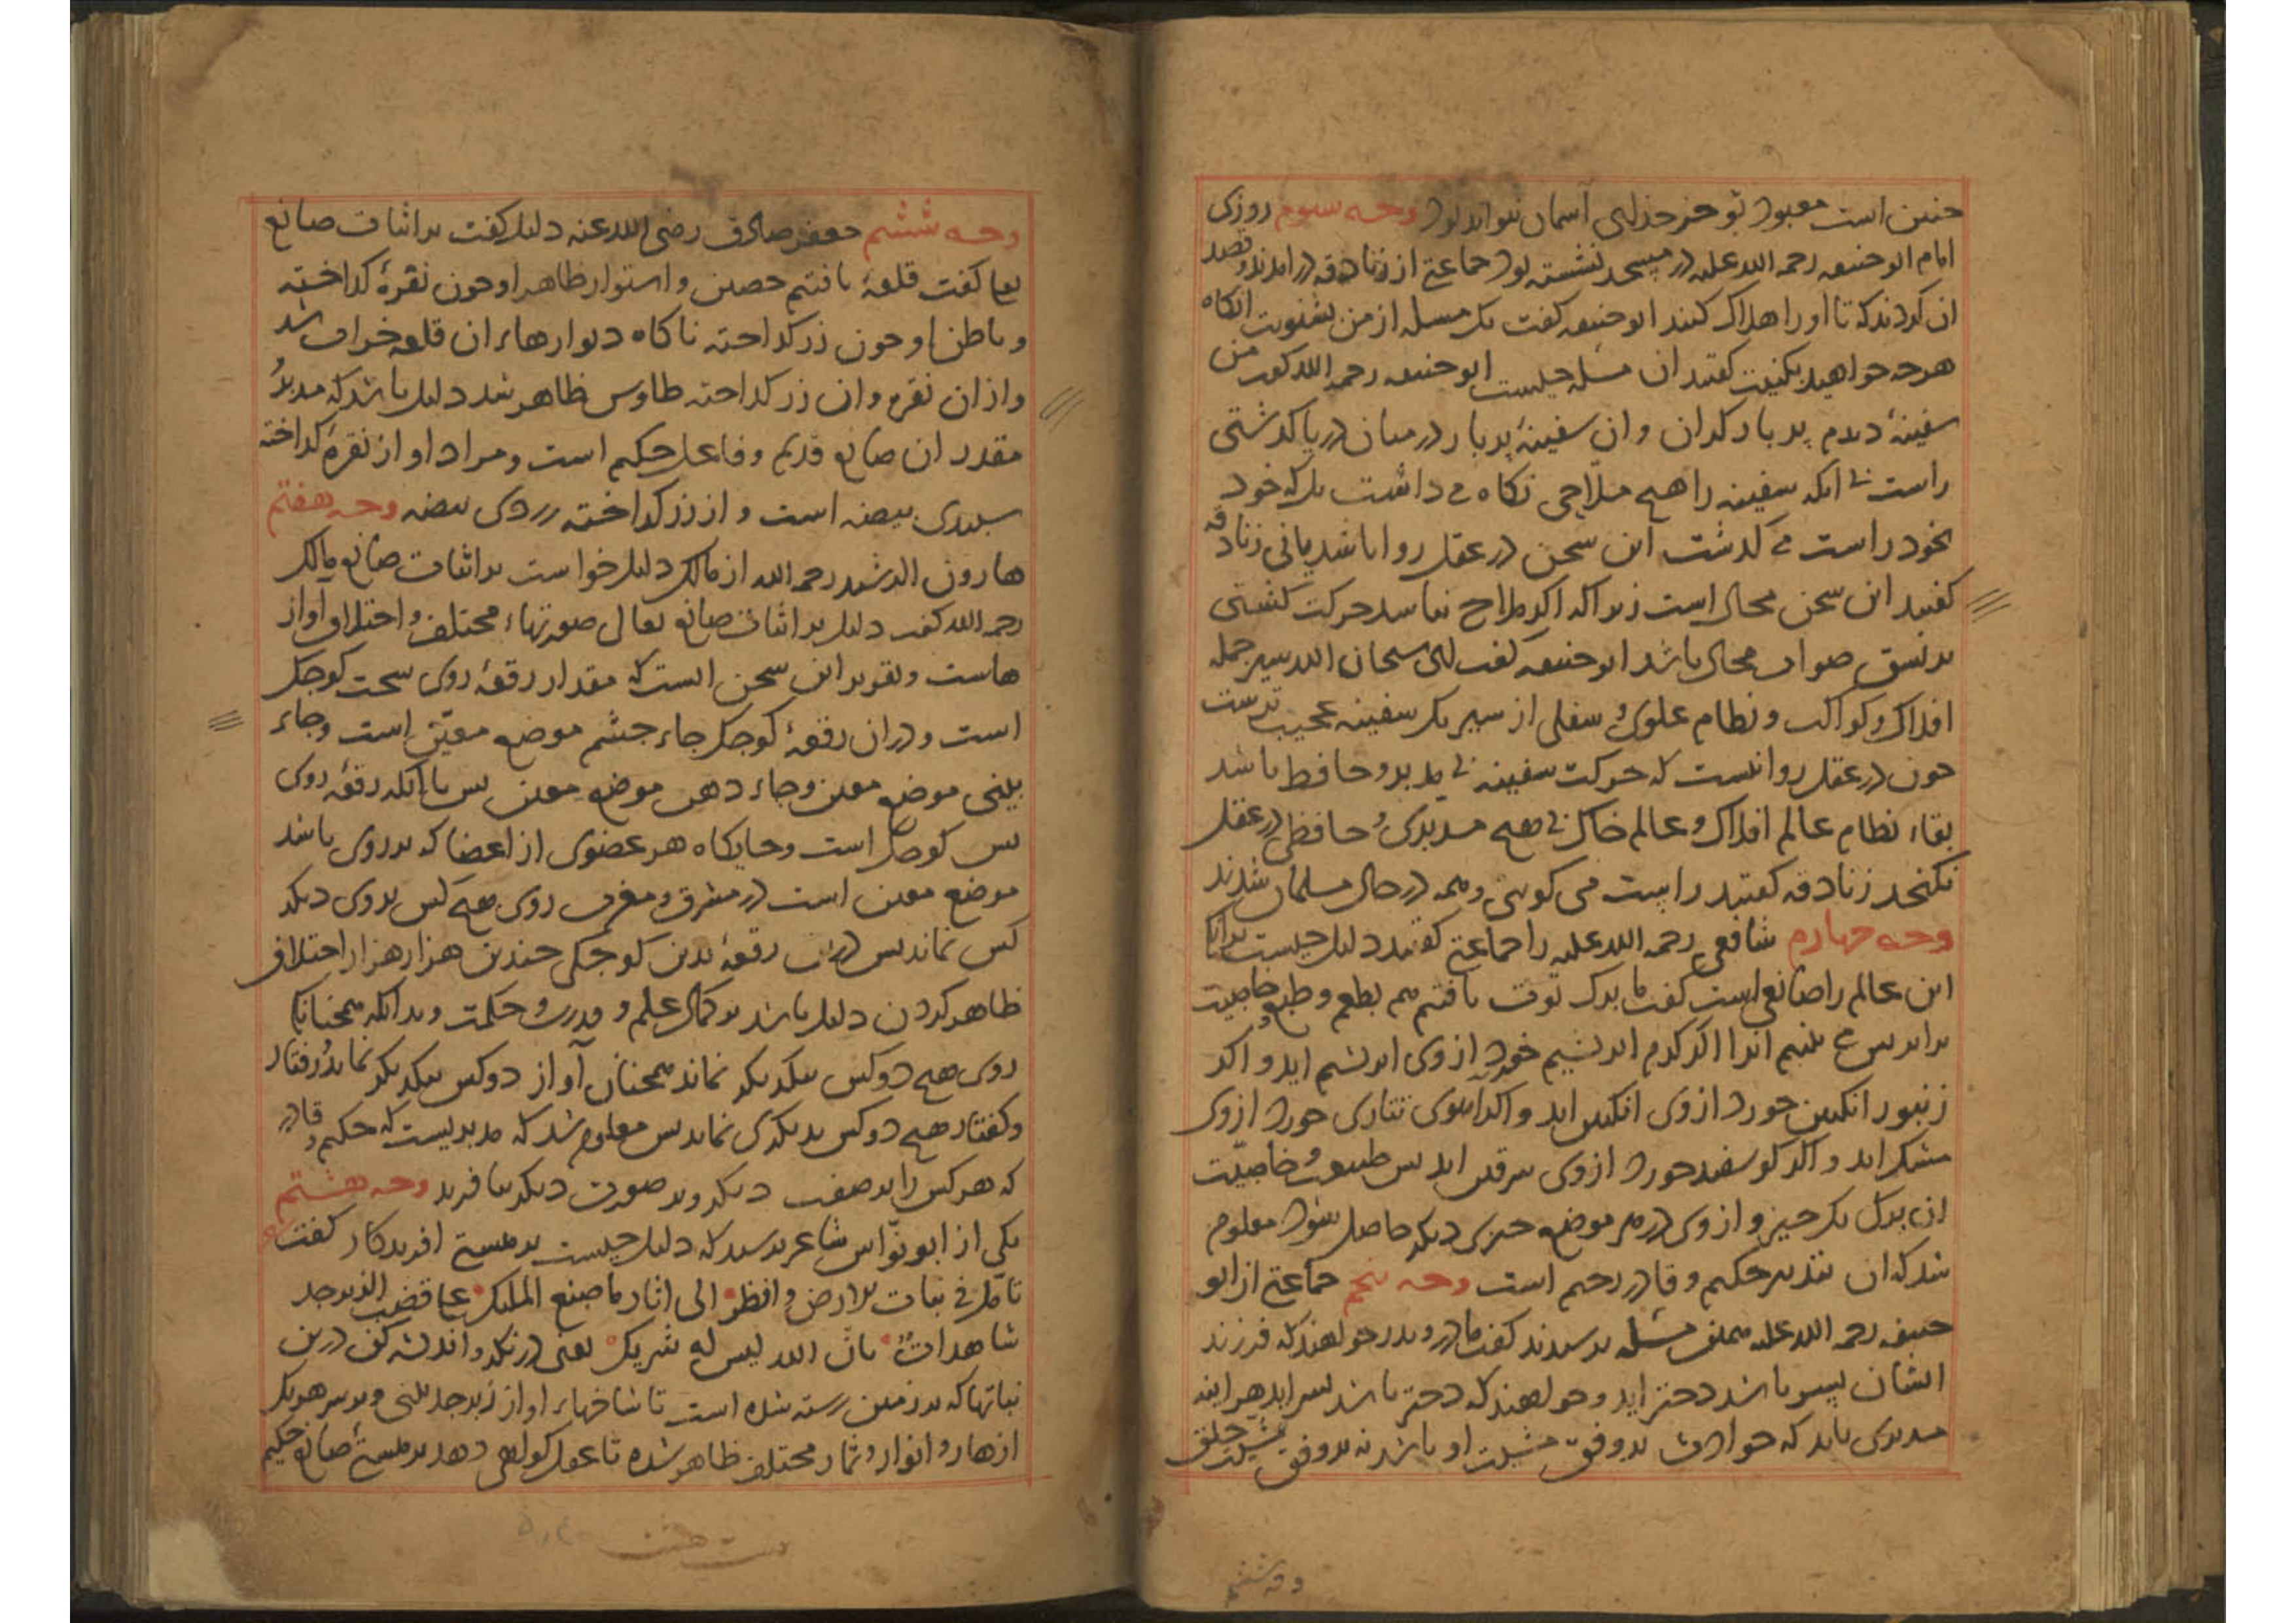 چنین است معبود تو جز خدای آسمان نتواند بود وجه سوم روزی
امام ابو حنیفه رحمه الله علیه در مسجد نشسته بود جماعتی از زنادقه درامدند و قصد
ان کردند که تا او را هلاک کنند ابو حنیفه کفت یک مسله از من بشنویت انکاه
هرچه خواهید بکنیت کفتند ان مسله چیست ابو حنیفه رحمه الله کفت من
سفینهٔ دیدم پر بار کران و ان سفینهٔ پر بار در میان دریا کذشتی
راست بی انکه سفینه را هیچ ملّاحی نکاه می داشت بل که خود
بخود راست می کذشت این سخن در عقل روا باشد یا نی زنادقه
کفتند این سخن محال است زیرا که اکر ملاح نباشد حرکت کشتی
بر نسق صواب محال باشد ابو حنیفه کفت ای سبحان الله سیر جمله
افلاک و کواکب و نظام علوی و سفلی از سیر یک سفینه عجیب ترست
چون در عقل روا نیست که حرکت سفینه بی مدبر و حافظ باشد
بقاء نظام عالم افلاک و عالم خاک بی هیچ مدبری و حافظی در عقل
نکنجد زنادقه کفتند راست می کویی و همه در حال مسلمان شدند
وجه چهارم شافعی رحمه الله علیه را جماعتی کفتند دلیل چیست برانکا
این عالم را صانعی است کفت ما برک توت یافتم هم بطعم و طبع و خاصیت
برابر پس می بینیم انرا اکر کرم ابریشیم خورد از وی ابریشم اید و اکر
زنبور انکبین خورد از وی انکبین اید و اکر آهوی تتاری خورد از وی
مشک اید و اکر کوسفند خورد از وی سرقین اید پس طبیعت و خاصیّت
ان برک یک چیز و از وی در هر موضع چیزی دیکر حاصل شود معلوم
شد که ان تقدیر حکیم و قادر رحیم است وجه پنجم جماعتی از ابو
حنیفه رحمه الله علیه همین مسله پرسیدند کفت مادر و پدر خواهند که فرزند
ایشان پسر باشد دختر اید و خواهند که دختر باشد پسر اید هراینه
مدبری باید که حوادث بر وفق مشیت او باشد نه بر وفق مشیت خلق
وجه ششم
وجه ششم جعفر صادق رضی الله عنه دلیل کفت بر اثبات صانع
تعا کفت قلعهٔ یافتیم حصین و استوار ظاهر او چون نقرهٔ کداخته
و باطن او چون زر کداخته ناکاه دیوارهاء ان قلعه خراب شد
و از ان نقره و ان زر کداخته طاوس ظاهر شد دلیل باشد که مدبر و
مقدر ان صانع قدیم و فاعل حکیم است و مراد او از نقرهٔ کداخته
سپیدی بیضه است و از زر کداخته زردی بیضه وجه هفتم
هارون الرشید رحمه الله از مالک دلیل خواست بر اثبات صانع مالک
رحمه الله کفت دلیل بر اثبات صانع تعالی صورتهاء مختلف و اختلاف اواز
هاست و تقریر این سخن انست که مقدار رقعهٔ روی سخت کوچک
است و دران رقعهٔ کوچک جاء چشم موضع معیّن است و جاء
بینی موضع معین و جاء دهن موضع معین پس با انکه رقعهٔ روی
بس کوچک است و جایکاه هر عضوی از اعضا که بر روی باشد
موضع معین است در مشرق و مغرب روی هیچ کس بروی دیکر
کس نماند پس دران رقعهٔ بدین کوچکی چندین هزار هزار اختلاف
ظاهر کردن دلیل باشد بر کمال علم و قدرت و حکمت و بدانکه همچنانکا
روی هیچ دو کس بیکدیکر نماند همچنان آواز دو کس بیکدیکر نماند و رفتار
و کفتار هیچ دو کس بدیکری نماند پس معلوم شد که مدبریست که حکیم و قادر
که هر کس را بر صفت دیکر و بر صورت دیکر بیافرید وجه هشتم
یکی از ابو نوّاس شاعر پرسید که دلیل چیست بر هستی افریدکار کفت
تامّل فی نبات الارض و انظر الی اثار ما صنع الملیک علی قضب الزبرجد
شاهدات بانّ الله لیس له شریک یعنی در نکر و اندیشه کن درین
نباتها که بر زمین رسته شده است تا شاخهاء او از زبرجد بینی و بر سر هر یک
ازهار و انوار و ثمار مختلف ظاهر شده تا عقل کواهی دهد بر هستی صانع حکیم